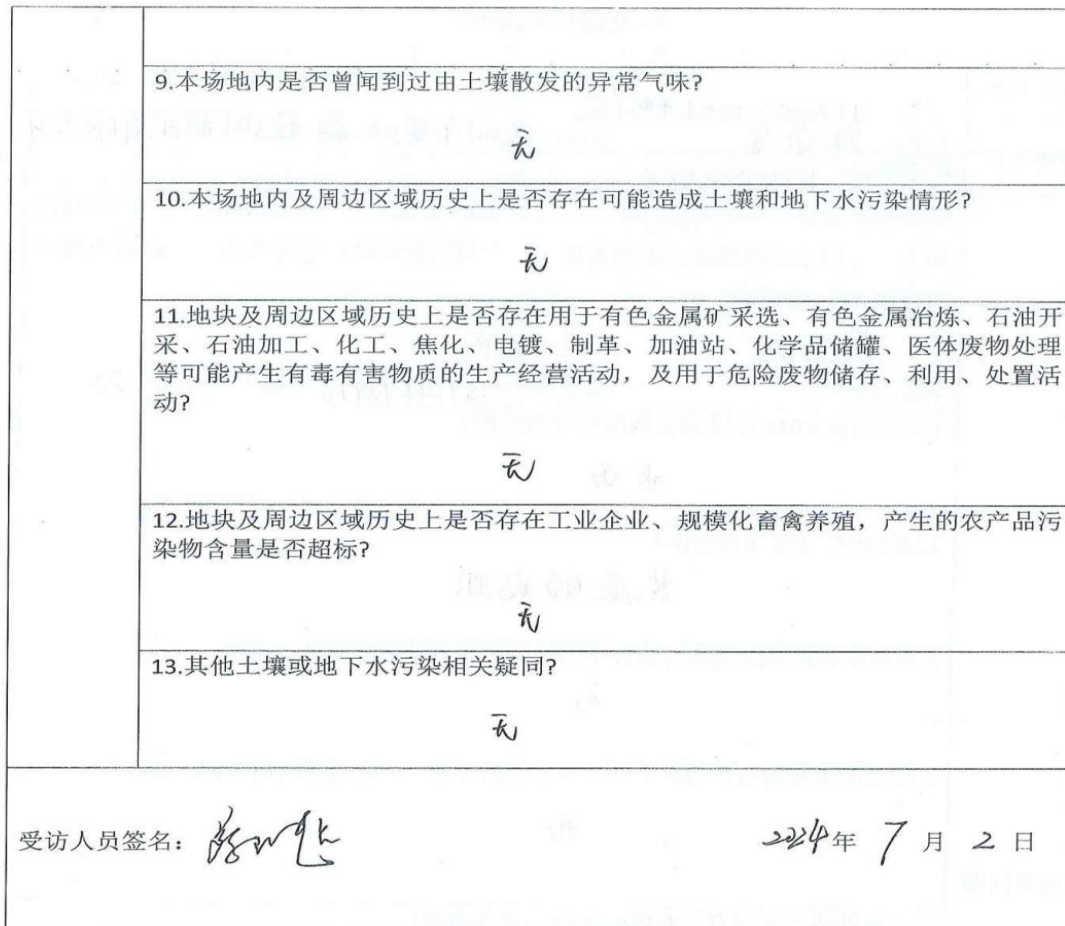 9.本场地内是否曾闻到过由土壤散发的异常气味?
无
10.本场地内及周边区域历史上是否存在可能造成土壤和地下水污染情形?
无
11.地块及周边区域历史上是否存在用于有色金属矿采选、有色金属冶炼、石油开
采、石油加工、化工、焦化、电镀、制革、加油站、化学品储罐、医体废物处理
等可能产生有毒有害物质的生产经营活动，及用于危险废物储存、利用、处置活
动?
无
12.地块及周边区域历史上是否存在工业企业、规模化畜禽养殖，产生的农产品污
染物含量是否超标?
无
13.其他土壤或地下水污染相关疑同?
无
受访人员签名：
2024年 7 月 2 日